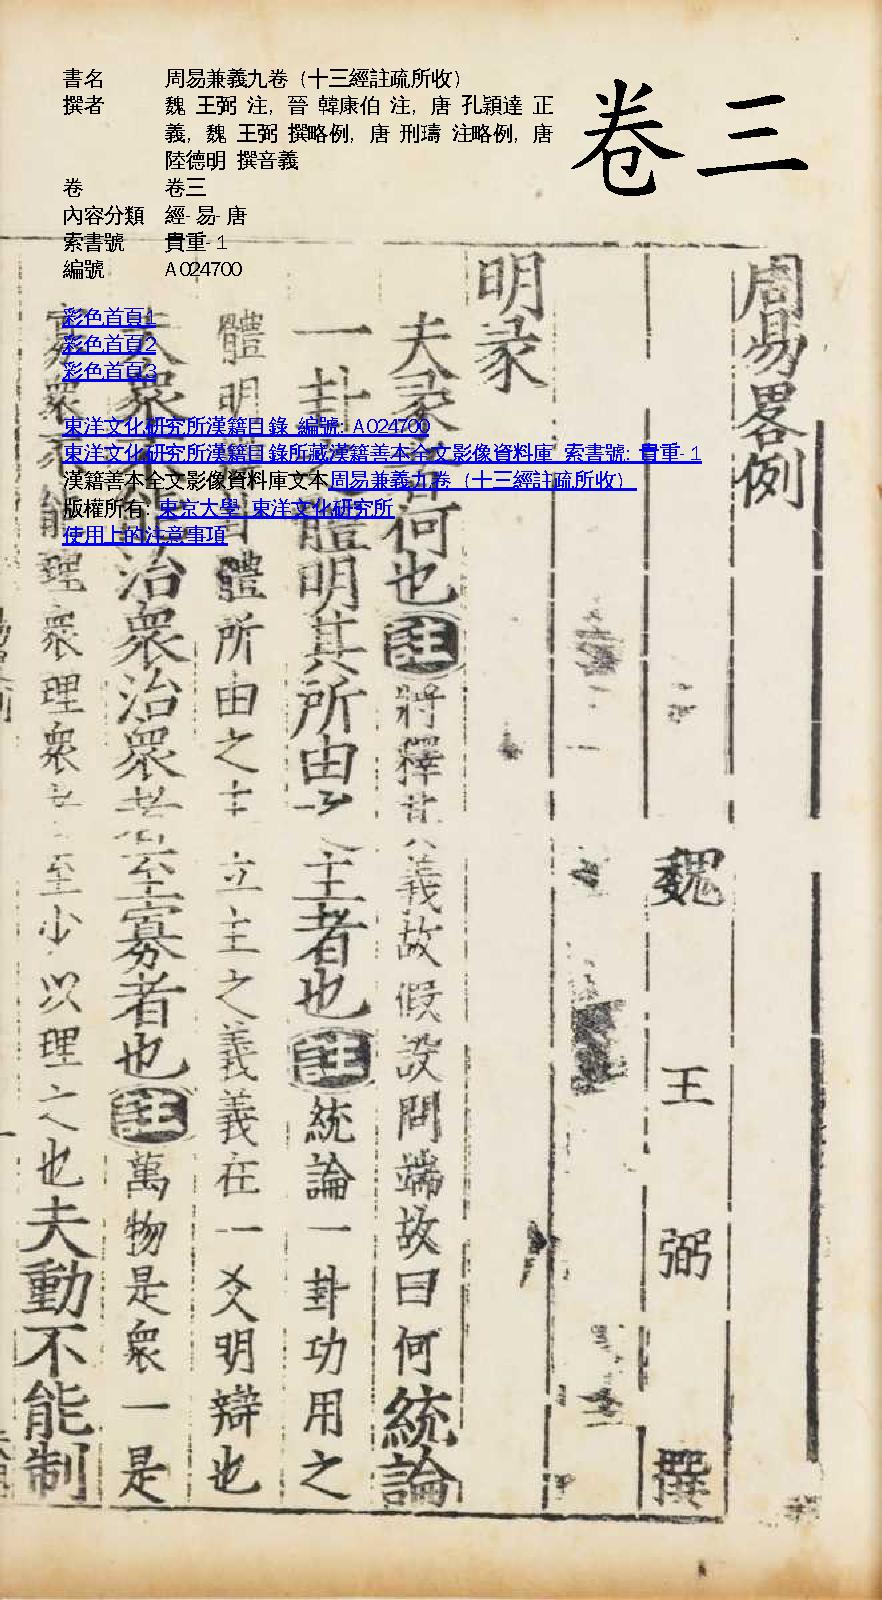 卷三
書名 周易兼義九卷（十三經註疏所收）
撰者 魏 王弼 注，晉 韓康伯 注，唐 孔穎達 正
義，魏 王弼 撰略例，唐 刑璹 注略例，唐
陸德明 撰音義
卷 卷三
內容分類 經-易-唐
索書號 貴重-1
編號 A024700
彩色首頁1
彩色首頁2
彩色首頁3
東洋文化研究所漢籍目錄 編號: A024700
東洋文化研究所漢籍目錄所藏漢籍善本全文影像資料庫 索書號: 貴重-1
漢籍善本全文影像資料庫文本周易兼義九卷（十三經註疏所收）
版權所有: 東京大學 東洋文化研究所
使用上的注意事項
周易畧例
魏 王 弼 撰
明彖
夫彖者何也註將釋其義故假設問端故曰何統論
一卦之體明其所由之主者也註統論一卦功用之
體明辯卦體體所由之主立主之義義在一爻明辯也
夫衆不能治衆治衆者至寡者也註萬物是衆一是
寡衆不能理衆理衆者至少以理之也夫動不能制